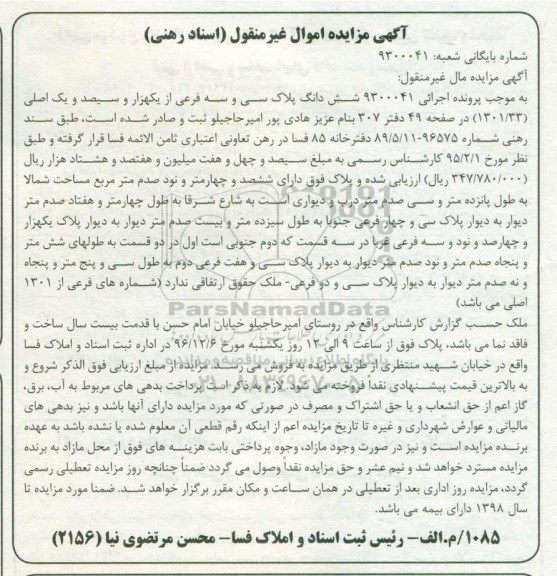 آگهی مزایده اموال غیرمنقول (اسناد رهنی)
شماره بایگانی شعبه: ۹۳۰۰۰۴۱
آگهی مزایده مال غیرمنقول:
به موجب پرونده اجرائی ۹۳۰۰۰۴۱ شش دانگ پلاک سی و سه فرعی از یکهزار و سیصد و یک اصلی
(۱۳۰۱/۳۳) در صفحه ۴۹ دفتر ۳۰۷ بنام عزیز هادی پور امیرحاجیلو ثبت و صادر شده است، طبق سند
رهنی شماره ۹۶۵۷۵-۸۹/۵/۱۱ دفترخانه ۸۵ فسا در رهن تعاونی اعتباری ثامن الائمه فسا قرار گرفته و طبق
نظر مورخ ۹۵/۲/۱ کارشناس رسمی به مبلغ سیصد و چهل و هفت میلیون و هفتصد و هشتاد هزار ریال
(۳۴۷/۷۸۰/۰۰۰ ریال) ارزیابی شده و پلاک فوق دارای ششصد و چهارمتر و نود صدم متر مربع مساحت شمالا
به طول پانزده متر و سی صدم متر درب و دیواری است به شارع شرقا به طول چهارمتر و هفتاد صدم متر
دیوار به دیوار پلاک سی و چهار فرعی جنوبا به طول سیزده متر و بیست صدم متر دیوار به دیوار پلاک یکهزار
و چهارصد و نود و سه فرعی غربا در سه قسمت که دوم جنوبی است اول در دو قسمت به طولهای شش متر
و پنجاه صدم متر و نود صدم متر دیوار به دیوار پلاک سی و هفت فرعی دوم به طول سی و پنج متر و پنجاه
و نه صدم متر دیوار به دیوار پلاک سی و دو فرعی- ملک حقوق ارتفاقی ندارد (شماره های فرعی از ۱۳۰۱
اصلی می باشد)
ParsNamadData
ملک حسب گزارش کارشناس واقع در روستای امیرحاجیلو خیابان امام حسن با قدمت بیست سال ساخت و
فاقد نما می باشد، پلاک فوق از ساعت ۹ الی ۱۲ روز یکشنبه مورخ ۹۶/۱۲/۶ در اداره ثبت اسناد و املاک فسا
واقع در خیابان شهید منتظری از طریق مزایده به فروش می رسد. مزایده از مبلغ ارزیابی فوق الذکر شروع و
به بالاترین قیمت پیشنهادی نقداً فروخته می شود. لازم به ذکر است پرداخت بدهی های مربوط به آب، برق،
گاز اعم از حق انشعاب و یا حق اشتراک و مصرف در صورتی که مورد مزایده دارای آنها باشد و نیز بدهی های
مالیاتی و عوارض شهرداری و غیره تا تاریخ مزایده اعم از اینکه رقم قطعی آن معلوم شده یا نشده باشد به عهده
برنده مزایده است و نیز در صورت وجود مازاد، وجوه پرداختی بابت هزینه های فوق از محل مازاد به برنده
مزایده مسترد خواهد شد و نیم عشر و حق مزایده نقداً وصول می گردد ضمناً چنانچه روز مزایده تعطیلی رسمی
گردد، مزایده روز اداری بعد از تعطیلی در همان ساعت و مکان مقرر برگزار خواهد شد. ضمنا مورد مزایده تا
سال ۱۳۹۸ دارای بیمه می باشد.
۱۰۸۵/م.الف- رئیس ثبت اسناد و املاک فسا- محسن مرتضوی نیا (۲۱۵۶)